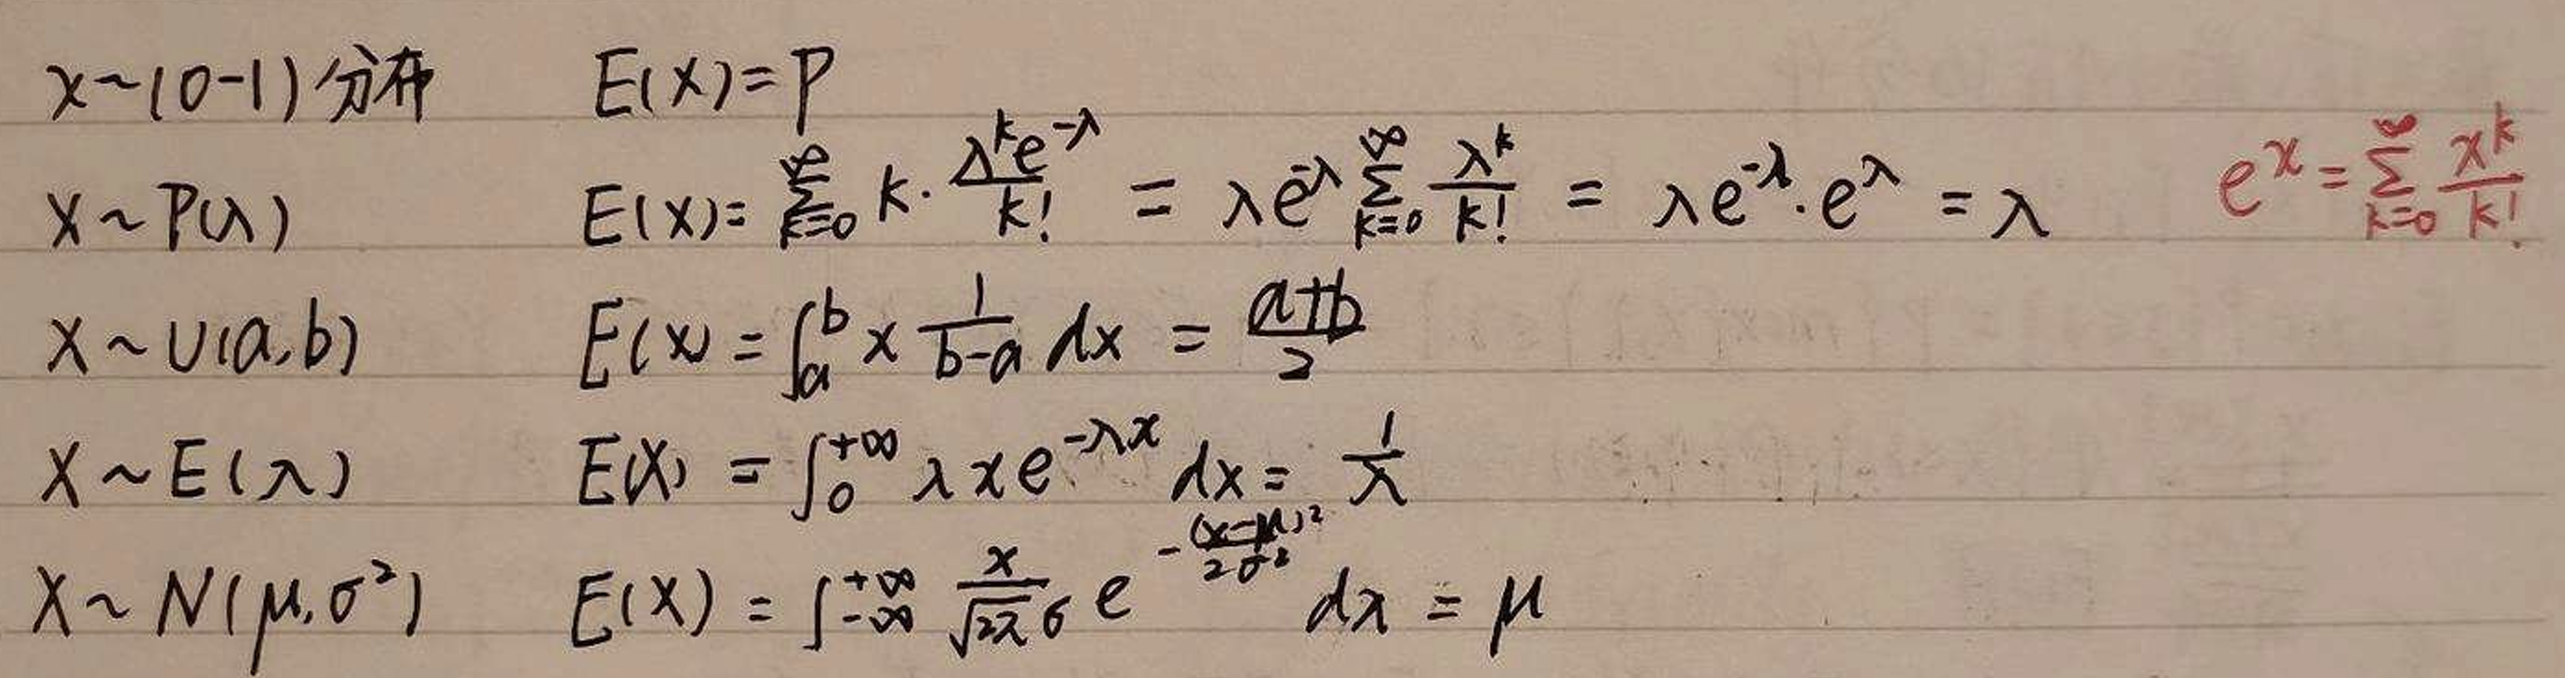 X~(0-1)分布 E(X)=P
X~P(λ) E(X)=∑_{k=0}^{∞} k·\frac{λ^k e^{-λ}}{k!} = λe^{-λ}∑_{k=0}^{∞}\frac{λ^k}{k!} = λe^{-λ}·e^λ = λ e^x=∑_{k=0}^{∞}\frac{x^k}{k!}
X~U(a,b) E(X)=∫_a^b x\frac{1}{b-a}dx = \frac{a+b}{2}
X~E(λ) E(X)=∫_0^{+∞} λxe^{-λx}dx=\frac{1}{λ}
X~N(μ,σ²) E(X)=∫_{-∞}^{+∞}\frac{x}{\sqrt{2π}σ}e^{-\frac{(x-μ)^2}{2σ^2}}dx=μ